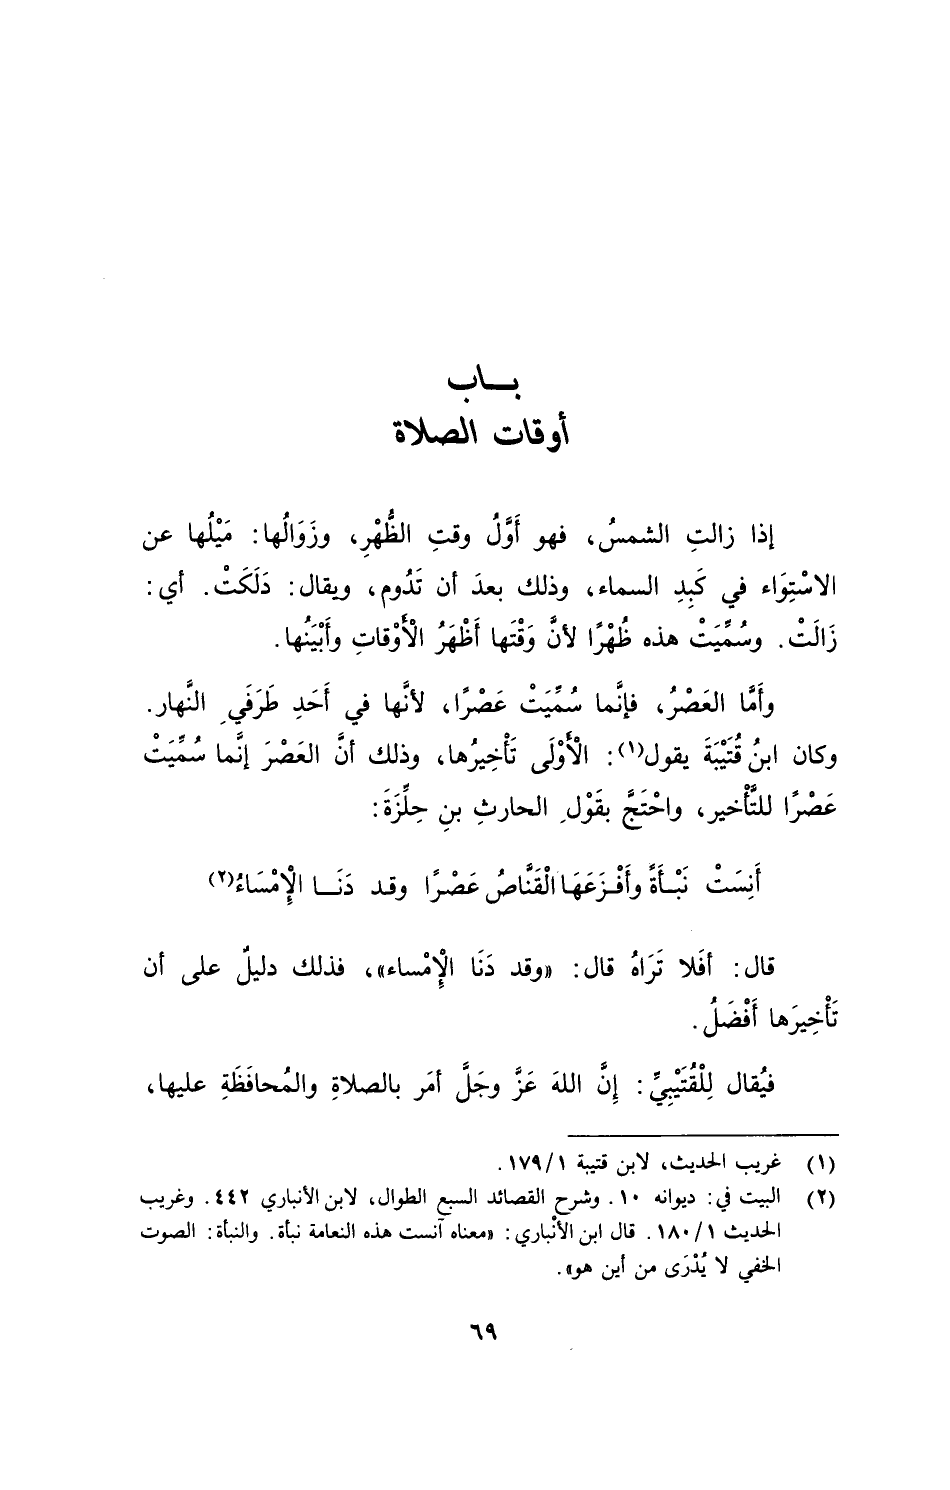 بـــاب
أوقات الصلاة
إذا زالتِ الشمسُ، فهو أَوَّلُ وقتِ الظُّهْرِ، وزَوَالُها: مَيْلُها عن
الاسْتِوَاء في كَبِدِ السماء، وذلك بعدَ أن تَدُوم، ويقال: دَلَكَتْ. أي:
زَالَتْ. وسُمِّيَتْ هذه ظُهْرًا لأنَّ وَقْتَها أَظْهَرُ الْأَوْقاتِ وأَبْيَنُها.
وأَمَّا العَصْرُ، فإنَّما سُمِّيَتْ عَصْرًا، لأنَّها في أَحَدِ طَرَفَيِ النَّهار.
وكان ابنُ قُتَيْبَةَ يقول(١): الْأَوْلَى تَأْخِيرُها، وذلك أنَّ العَصْرَ إنَّما سُمِّيَتْ
عَصْرًا للتَّأْخير، واحْتَجَّ بقَوْلِ الحارثِ بنِ حِلِّزَةَ:
أَنِسَتْ نَبْـأَةً وأَفْـزَعَهَا الْقَنَّاصُ عَصْرًا وقـد دَنَــا الْإِمْسَاءُ(٢)
قال: أفَلا تَرَاهُ قال: «وقد دَنَا الْإِمْساء»، فذلك دليلٌ على أن
تَأْخِيرَها أَفْضَلُ.
فيُقال لِلْقُتَيْبِيِّ: إنَّ اللهَ عَزَّ وجَلَّ أمَر بالصلاةِ والمُحافَظَةِ عليها،
(١) غريب الحديث، لابن قتيبة ١/١٧٩.
(٢) البيت في: ديوانه ١٠. وشرح القصائد السبع الطوال، لابن الأنباري ٤٤٢. وغريب
الحديث ١/١٨٠. قال ابن الأنْباري: «معناه آنست هذه النعامة نبأة. والنبأة: الصوت
الخفي لا يُدْرَى من أين هو».
٦٩